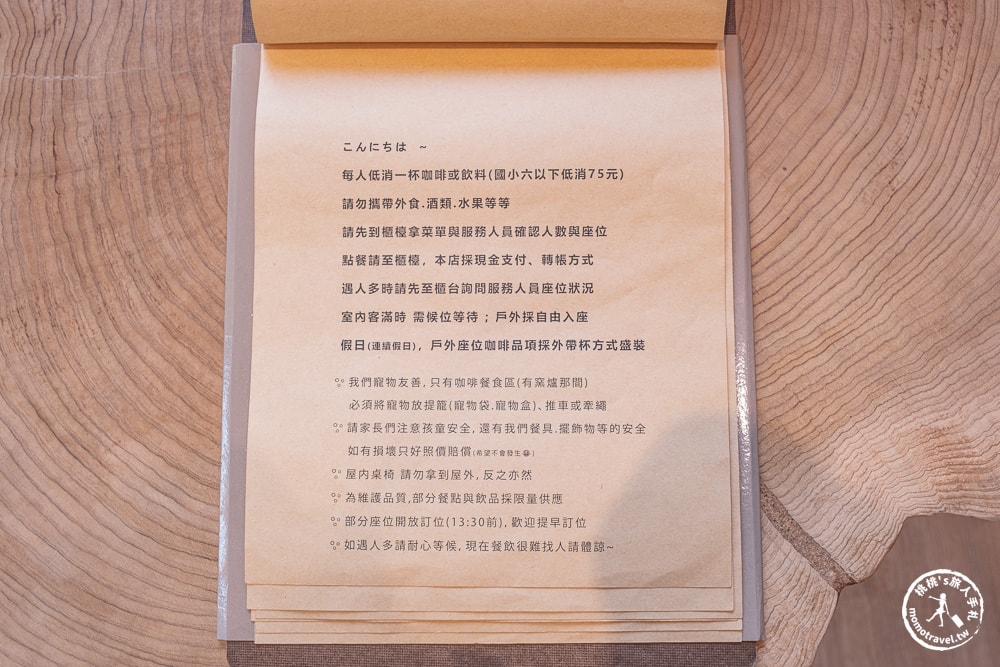 こんにちは ~
每人低消一杯咖啡或飲料(國小六以下低消75元)
請勿攜帶外食.酒類.水果等等
請先到櫃檯拿菜單與服務人員確認人數與座位
點餐請至櫃檯, 本店採現金支付、轉帳方式
遇人多時請先至櫃台詢問服務人員座位狀況
室內客滿時 需候位等待 ; 戶外採自由入座
假日(連續假日), 戶外座位咖啡品項採外帶杯方式盛裝
我們寵物友善, 只有咖啡餐食區(有窯爐那間)
必須將寵物放提籠(寵物袋.寵物盒)、推車或牽繩
請家長們注意孩童安全, 還有我們餐具.擺飾物等的安全
如有損壞只好照價賠償(希望不會發生😅)
屋內桌椅 請勿拿到屋外, 反之亦然
為維護品質,部分餐點與飲品採限量供應
部分座位開放訂位(13:30前), 歡迎提早訂位
如遇人多請耐心等候, 現在餐飲很難找人請體諒~
桃桃's旅人手札
momotravel.tw